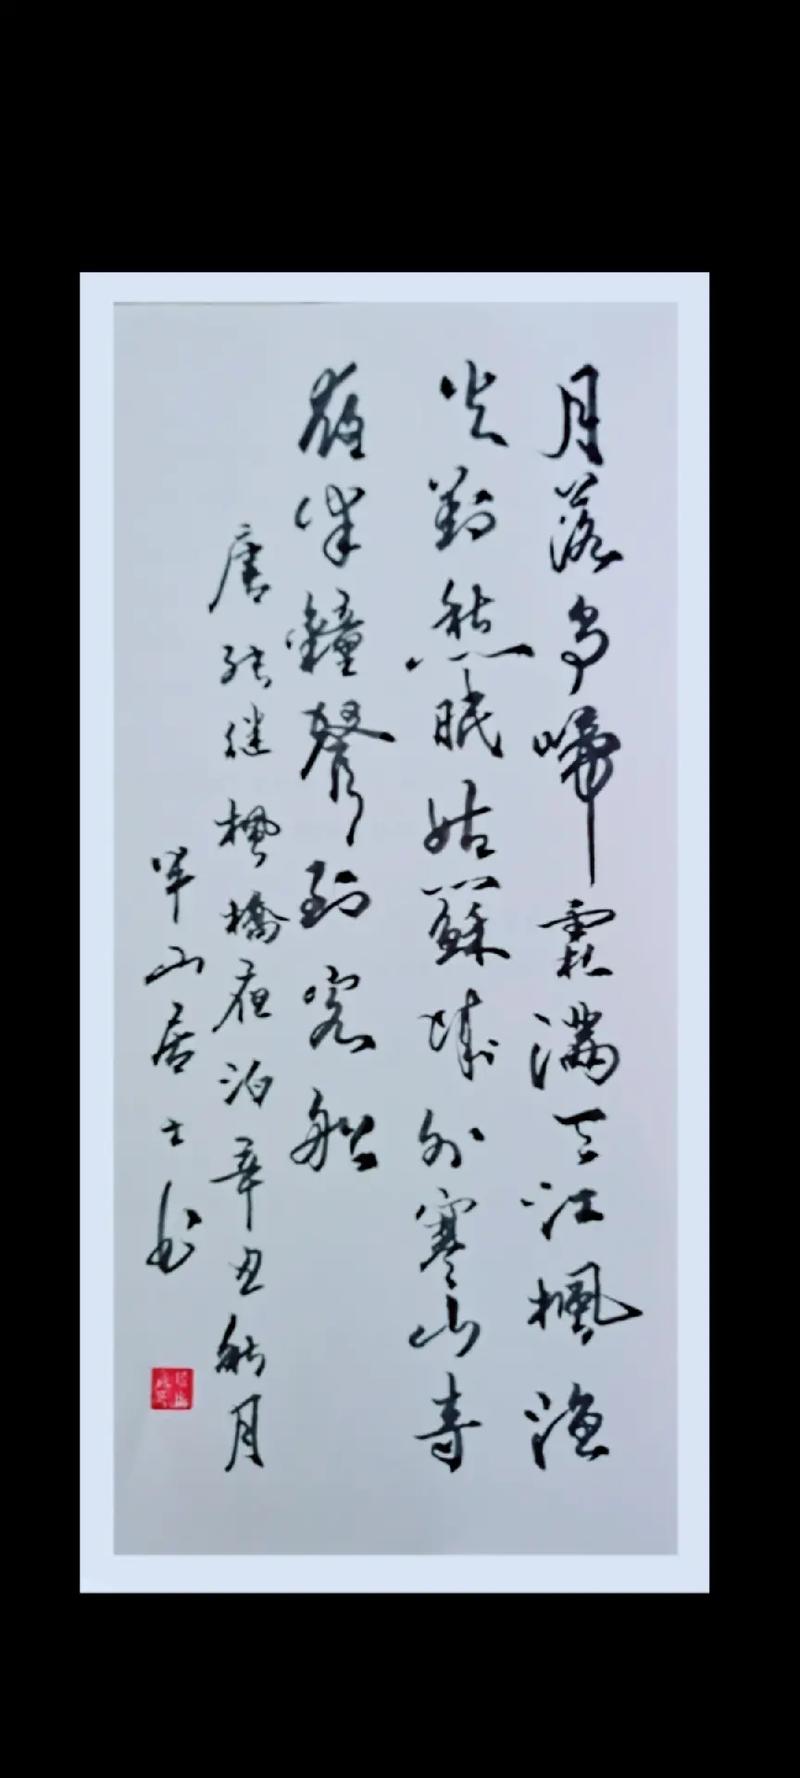 月落烏啼霜滿天江楓漁
火對愁眠姑蘇城外寒山寺
夜半鐘聲到客船
唐張继楓橋夜泊辛丑秋月
半山居士书